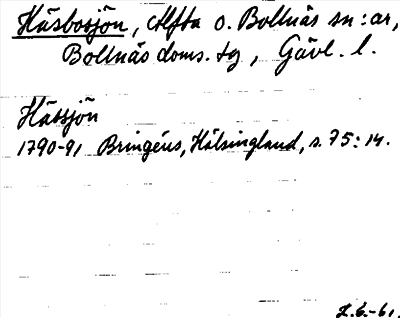 Häsbosjön, Alfta o. Bollnäs sn:ar,
Bollnäs doms. tg, Gävl. l.
Hässjön
1790-91 Bringéus, Hälsingland, s. 75:14.
L.6.-61.